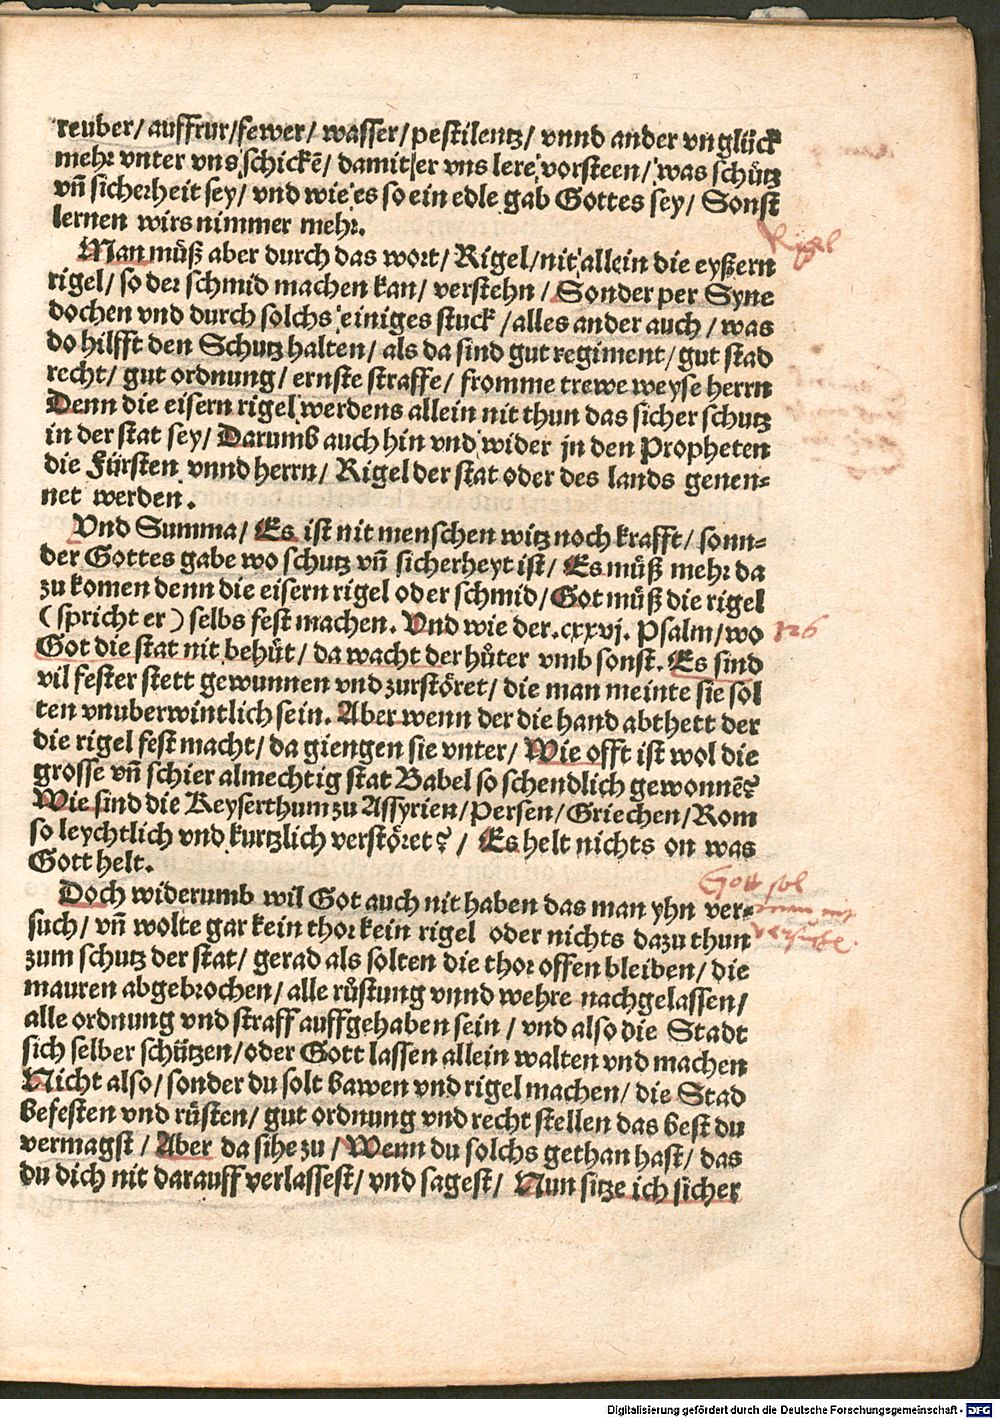 reuber/ auffrur/ fewer/ wasser/ pestilentz/ vnnd ander vnglück
mehr vnter vns schickē/ damit er vns lere vorsteen/ was schütz
vn̄ sicherheit sey/ vnd wie es so ein edle gab Gottes sey/ Sonst
lernen wirs nimmer mehr.
Man müß aber durch das wort/ Rigel/ nit allein die eyßern
Rigel
rigel/ so der schmid machen kan/ verstehn/ Sonder per Syne
dochen vnd durch solchs einiges stuck/ alles ander auch/ was
do hilfft den Schutz halten/ als da sind gut regiment/ gut stad
recht/ gut ordnung/ ernste straffe/ fromme trewe weyse herrn
Denn die eisern rigel werdens allein nit thun das sicher schutz
in der stat sey/ Darumb auch hin vnd wider jn den Propheten
die Fürsten vnnd herrn/ Rigel der stat oder des lands genen-
net werden.
Vnd Summa/ Es ist nit menschen witz noch krafft/ sonn-
der Gottes gabe wo schutz vn̄ sicherheyt ist/ Es müß mehr da
zu komen denn die eisern rigel oder schmid/ Got müß die rigel
(spricht er) selbs fest machen. Vnd wie der .cxxvj. Psalm/ wo
126
Got die stat nit behüt/ da wacht der hůter vmb sonst. Es sind
vil fester stett gewunnen vnd zurstöret/ die man meinte sie sol
ten vnuberwintlich sein. Aber wenn der die hand abthett der
die rigel fest macht/ da giengen sie vnter/ Wie offt ist wol die
grosse vn̄ schier almechtig stat Babel so schendlich gewonnē?
Wie sind die Keyserthum zu Assyrien/ Persen/ Griechen/ Rom
so leychtlich vnd kurtzlich verstöret?/ Es helt nichts on was
Gott helt.
Gott sol
Doch widerumb wil Got auch nit haben das man yhn ver-
such/ vn̄ wolte gar kein thor kein rigel oder nichts dazu thun
zum schutz der stat/ gerad als solten die thor offen bleiben/ die
mauren abgebrochen/ alle růstung vnnd wehre nachgelassen/
alle ordnung vnd straff auffgehaben sein/ vnd also die Stadt
sich selber schützen/ oder Gott lassen allein walten vnd machen
Nicht also/ sonder du solt bawen vnd rigel machen/ die Stad
befesten vnd rüsten/ gut ordnung vnd recht stellen das best du
vermagst/ Aber da sihe zu/ Wenn du solchs gethan hast/ das
du dich nit darauff verlassest/ vnd sagest/ Nun sitze ich sicher
Digitalisierung gefördert durch die Deutsche Forschungsgemeinschaft - DFG